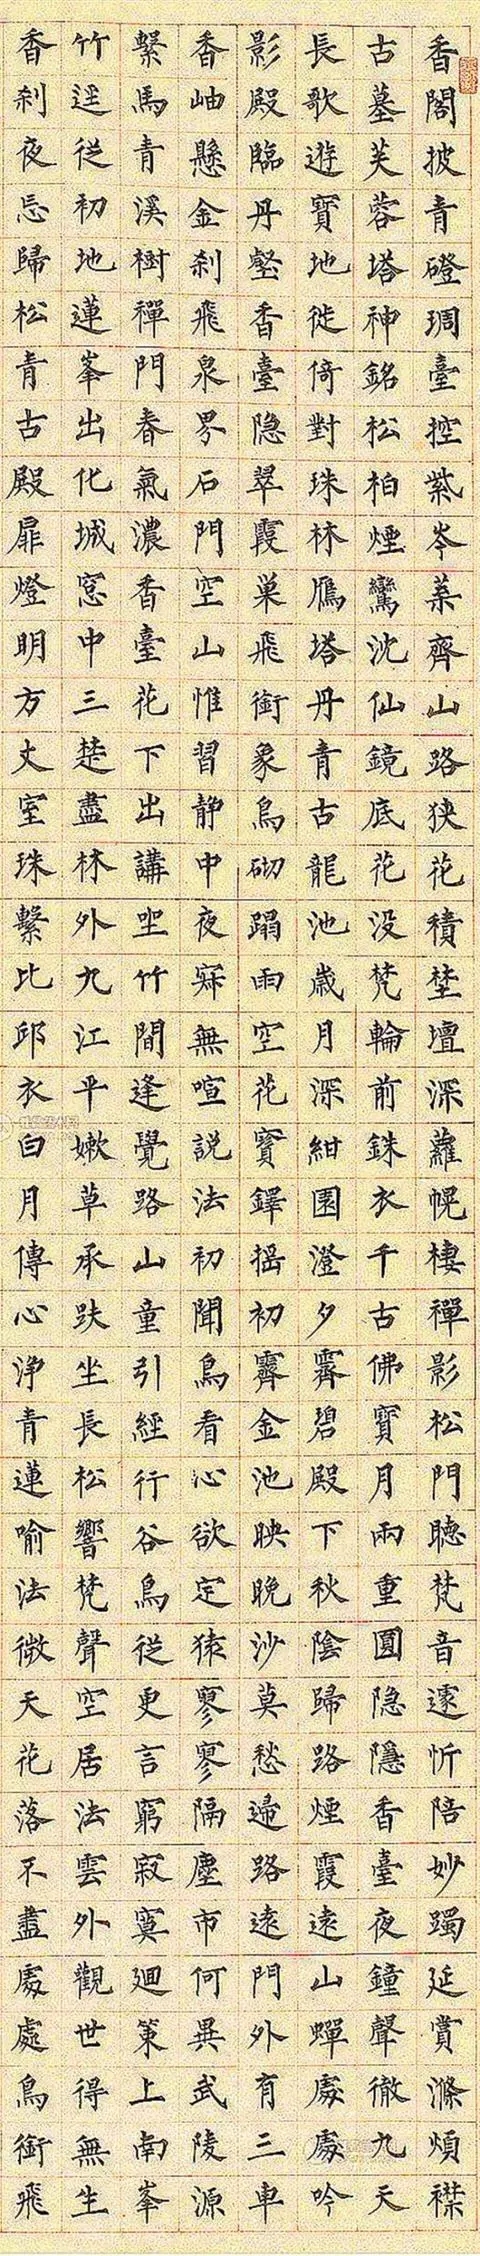 香閣披青磴琱臺控紫岑葉齊山路狹花積埜壇深蘿幌棲禪影松門聴梵音遽忻陪妙躅延賞滌煩襟
古墓芙蓉塔神銘松柏煙鸞沈仙鏡底花没梵輪前銖衣千古佛寶月兩重圓隐隱香臺夜鐘聲徹九天
長歌遊寳地徙倚對珠林鴈塔丹青古龍池歳月深紺園澄夕霽碧殿下秋陰歸路煙霞遠山蟬處處吟
影殿臨丹壑香臺隐翠霞巢飛銜象鳥砌蹋雨空花寶鐸揺初霽金池映晚沙莫愁歸路遠門外有三車
香岫懸金刹飛泉界石門空山惟習静中夜寂無喧説法初聞鳥看心欲定猿寥寥隔塵市何異武陵源
繋馬青溪樹禪門春氣濃香臺花下出講坐竹間逢覺路山童引經行谷鳥從更言窮寂寞廻策上南峯
竹逕從初地蓮峯出化城窓中三楚盡林外九江平嫩草承趺坐長松響梵聲空居法雲外觀世得無生
香刹夜忘歸松青古殿扉燈明方丈室珠繫比邱衣白月傳心浄青蓮喻法微天花落不盡處處鳥銜飛